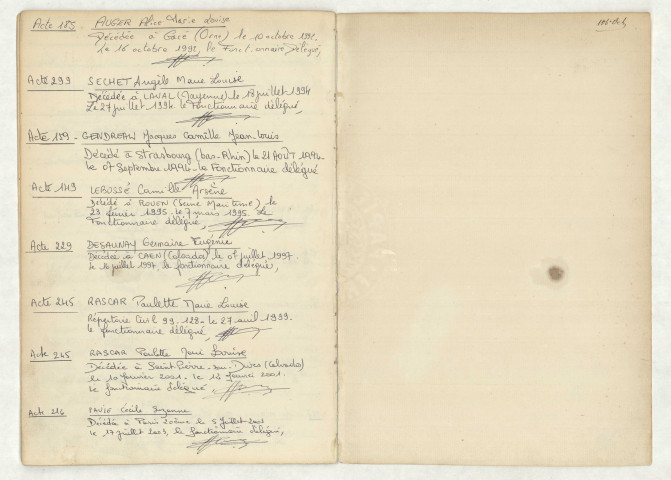 Acte 185. AUGER Alice Marie Louise
Décédée à Gacé (Orne) le 10 octobre 1992,
Le 16 octobre 1992, le Fonctionnaire Délégué,
Acte 299 SECHET Angèle Marie Louise
Décédée à LAVAL (Mayenne) le 18 juillet 1994
Le 27 juillet 1994. le Fonctionnaire délégué,
Acte 189 - GENDREAU Jacques Camille Jean Louis
Décédé à Strasbourg (bas-Rhin) le 21 AOÛT 1994-
le 07 Septembre 1994- le Fonctionnaire délégué
Acte 149 LEBOSSÉ Camille Arsène
Décédé à ROUEN (Seine Maritime) le
23 février 1995. le 7 mars 1995. Le
Fonctionnaire délégué,
Acte 229 DESAUNAY Germaine Eugénie
Décédée à CAEN (Calvados) le 07 juillet 1997.
Le 16 juillet 1997, le fonctionnaire délégué,
Acte 245 RASCAR Paulette Marie Louise
Répertoire Civil 99-128- le 27 avril 1999-
le fonctionnaire délégué,
Acte 245 RASCAR Paulette Marie Louise
Décédée à Saint Pierre-sur-Dives (Calvados)
le 10 février 2001- le 12 février 2001.
Le fonctionnaire délégué
Acte 216 PAVIE Cécile Suzanne
Décédée à Paris 20ème le 5 juillet 2003
le 17 juillet 2003, le fonctionnaire délégué,